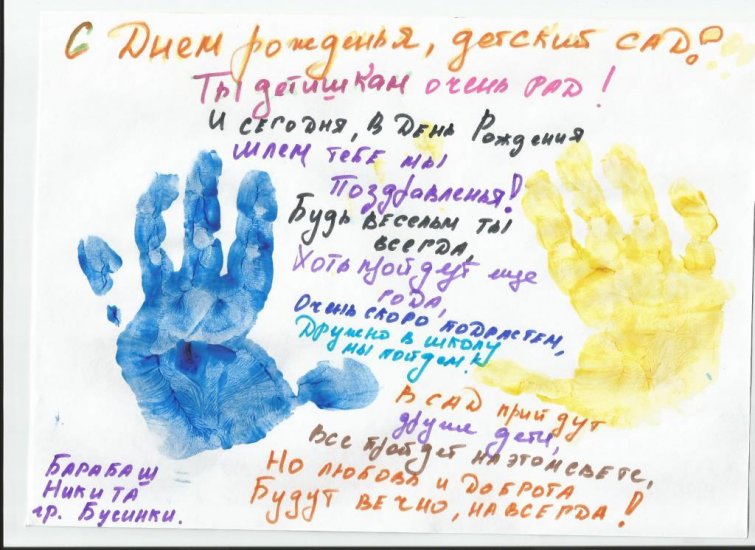 С Днем рожденья, детский САД!
Ты детишкам очень рад!
И сегодня, в День Рождения
шлем тебе мы
Поздравленья!
Будь веселым ты
всегда,
Хоть пройдут еще
года,
Очень скоро подрастем,
Дружно в школу
мы пойдем.
В САД придут
другие дети,
Все пройдет на этом свете,
Но любовь и доброта
Будут вечно, навсегда!
Барабаш
Никита
гр. Бусинки.